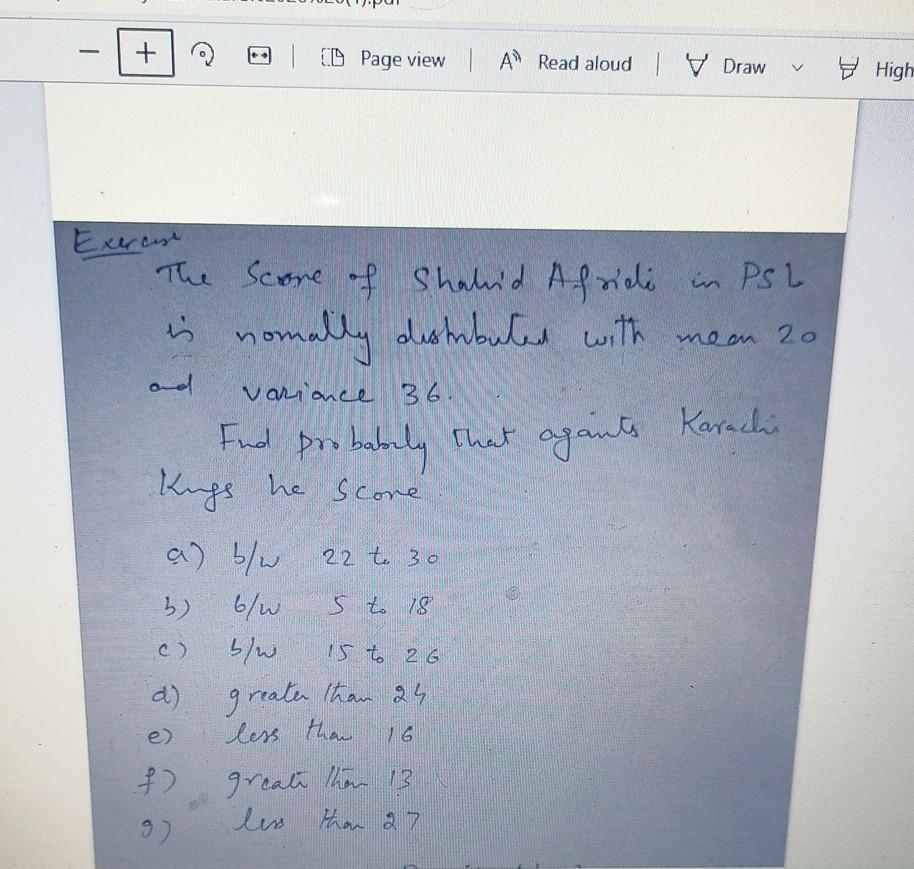 Page view
Read aloud
Draw
High
Exercise
The Score of Shahid Afridi in PSL
is nomally distributed with mean 20
and variance 36.
Find probabily that against Karachi
Kings he score
a) b/w 22 to 30
b) b/w 5 to 18
c) b/w 15 to 26
d) greater than 24
e) less than 16
f) greate than 13
g) less than 27